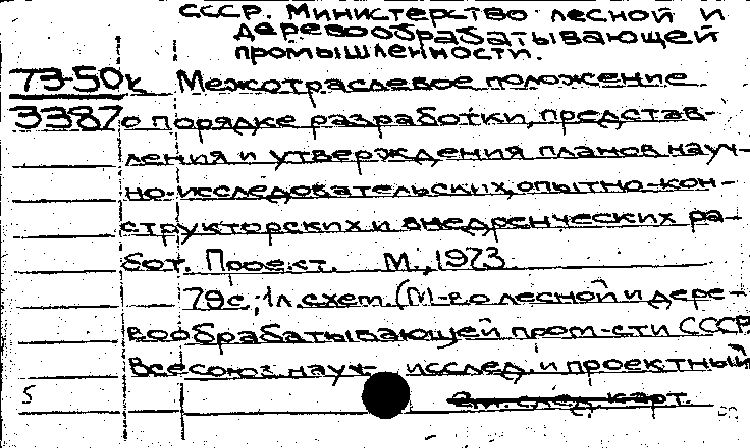 СССР. Министерство лесной и
деревообрабатывающей
промышленности.
73-50к Межотраслевое положение
3387 о порядке разработки, представ-
ления и утверждения планов науч-
но-исследовательских, опытно-кон-
структорских и внедренческих ра-
бот. Проект. М., 1973
79с., 1л. схем. (М-во лесной и дере-
вообрабатывающей пром-сти СССР
Всесоюз. науч- исслед. и проектный
5 См. след. карт.